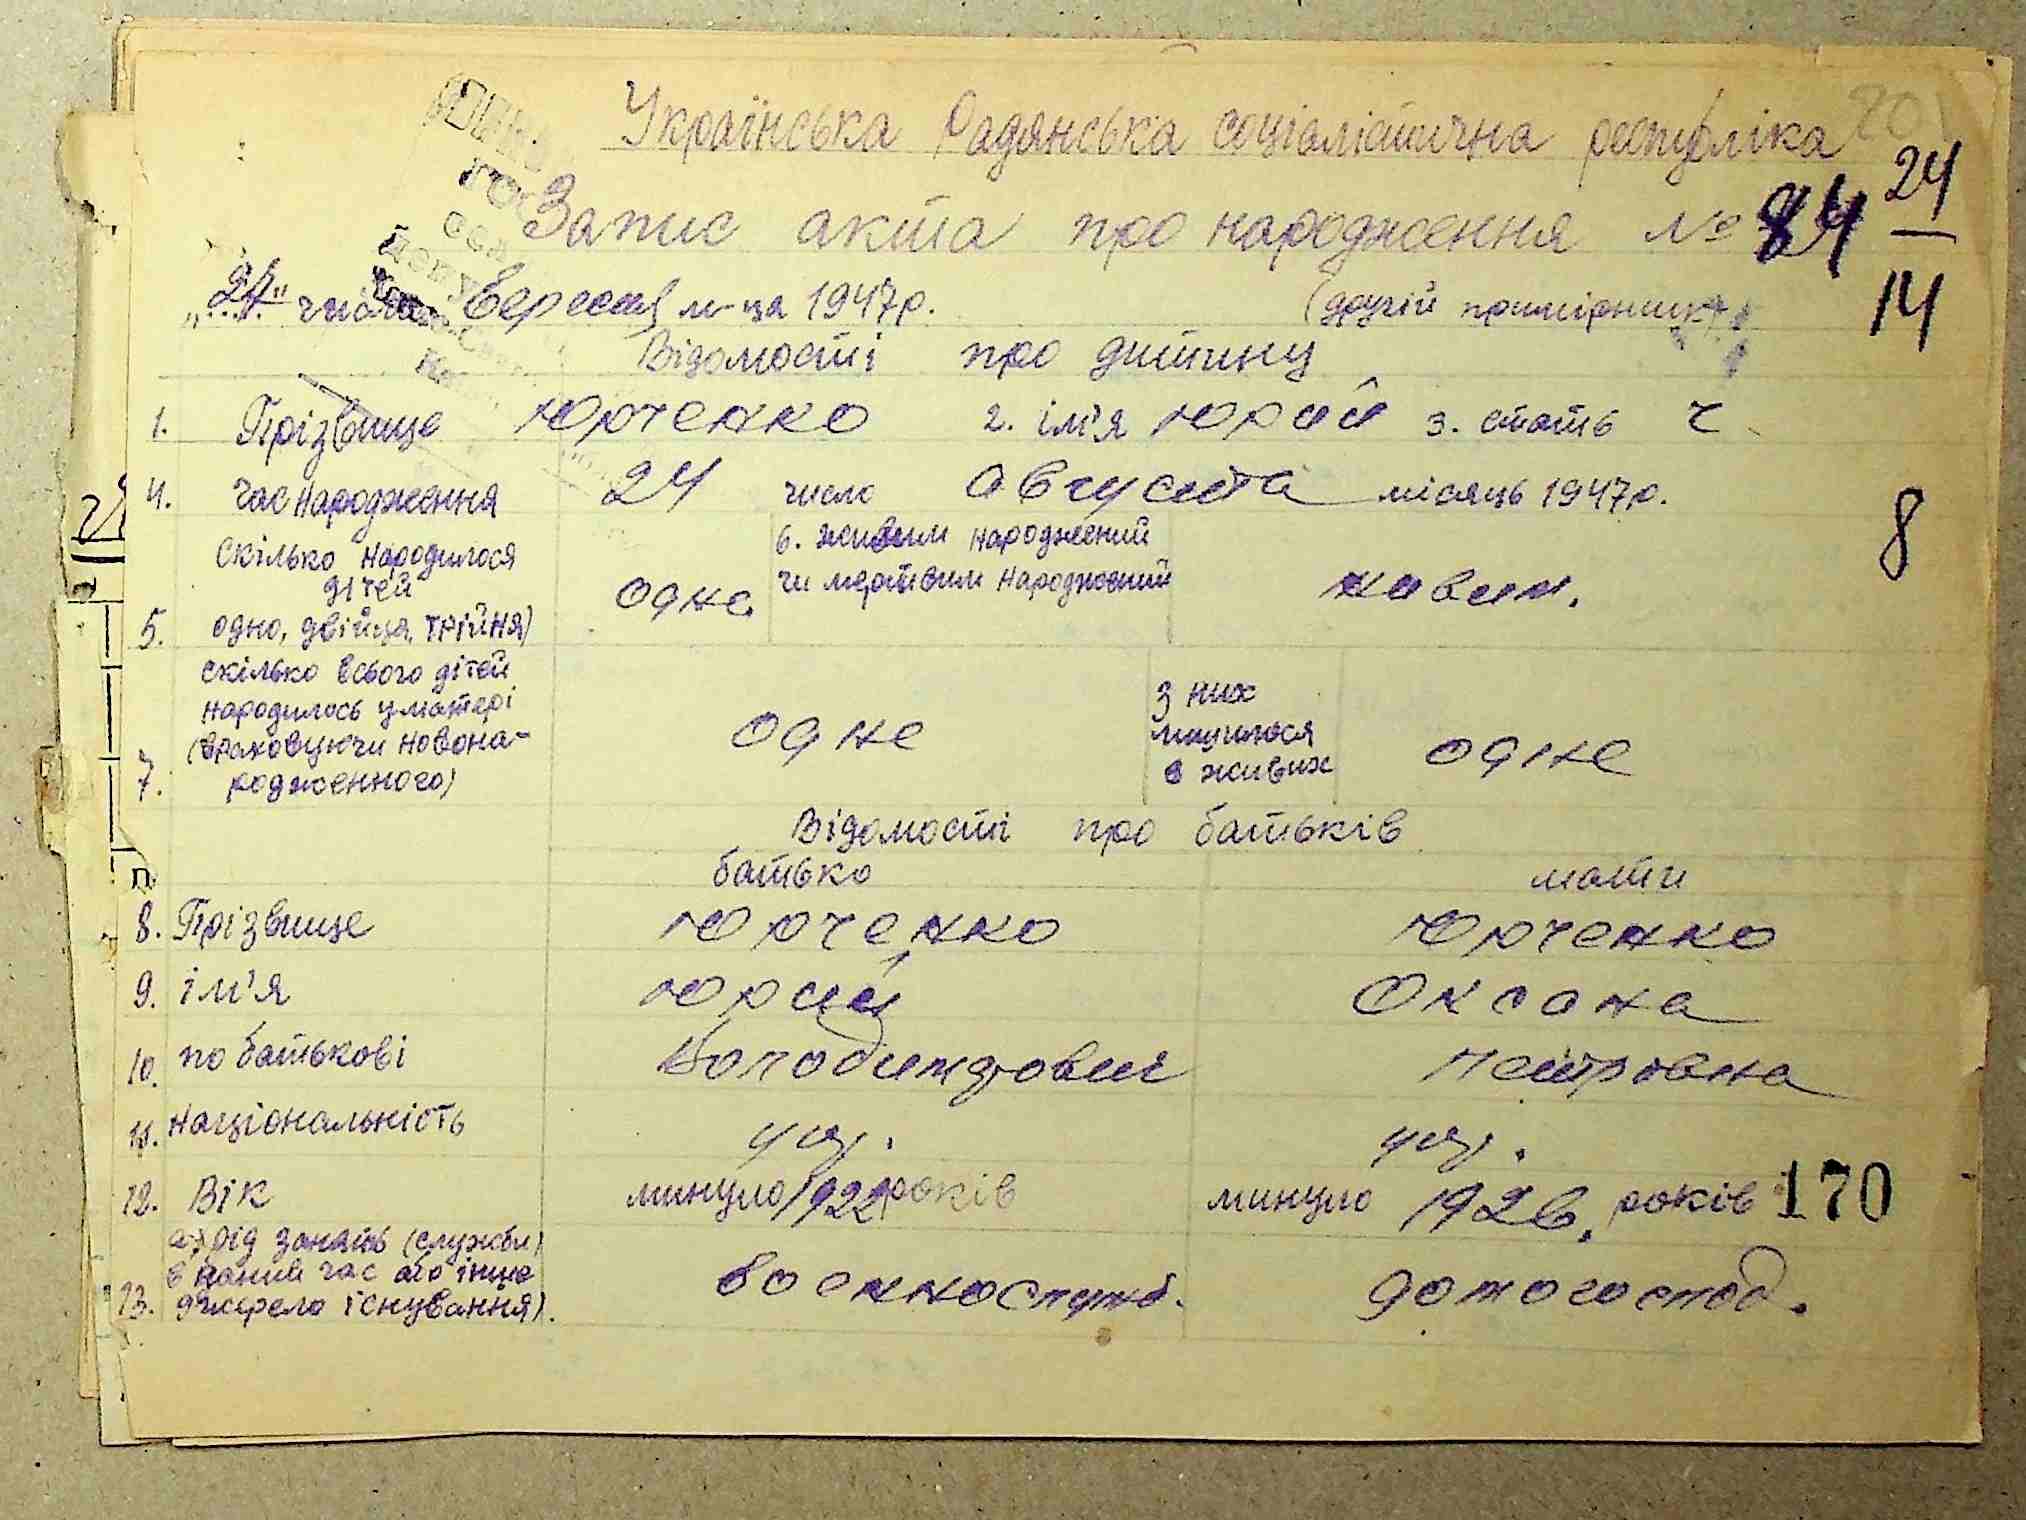 Українська Радянська соціалістична республіка
Запис акта про народження № 84
24
14
"24" числа Вересня м-ця 1947р. (другій примірник)
Відомості про дитину
1. Прізвище Юрченко 2. ім'я Юрий 3. стать ч
4. час народження 24 число августа місяць 1947р.
8
скілько народилося дітей
5. одно, двійця, трійня) одне
6. живим народжений
чи мертвим народжений живим.
скілько всього дітей
народилось у матері
(враховуючи новона-
7. родженного) одне
з них
лишилося
в живих одне
Відомості про батьків
батько мати
8. Прізвище Юрченко Юрченко
9. ім'я Юрий Оксана
10. по батькові Володимирович Петровна
11. Національність укр. укр.
12. Вік минуло 1922 років минуло 1926. років 170
а) рід занять (служби)
в даний час або інше
13. джерело існування). военнослужб. домогоспод.